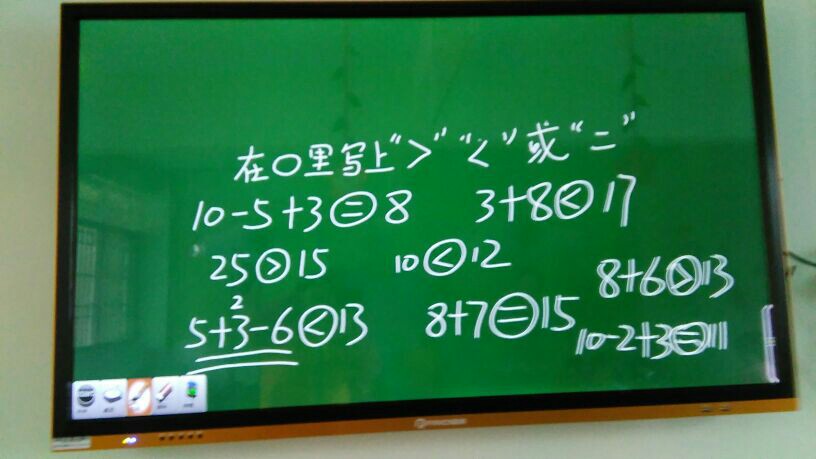 在○里写上“>”“<”或“=”
10-5+3=8 3+8<17
25>15 10<12
8+6>13
2
5+3-6<13 8+7=15
10-2+3=11